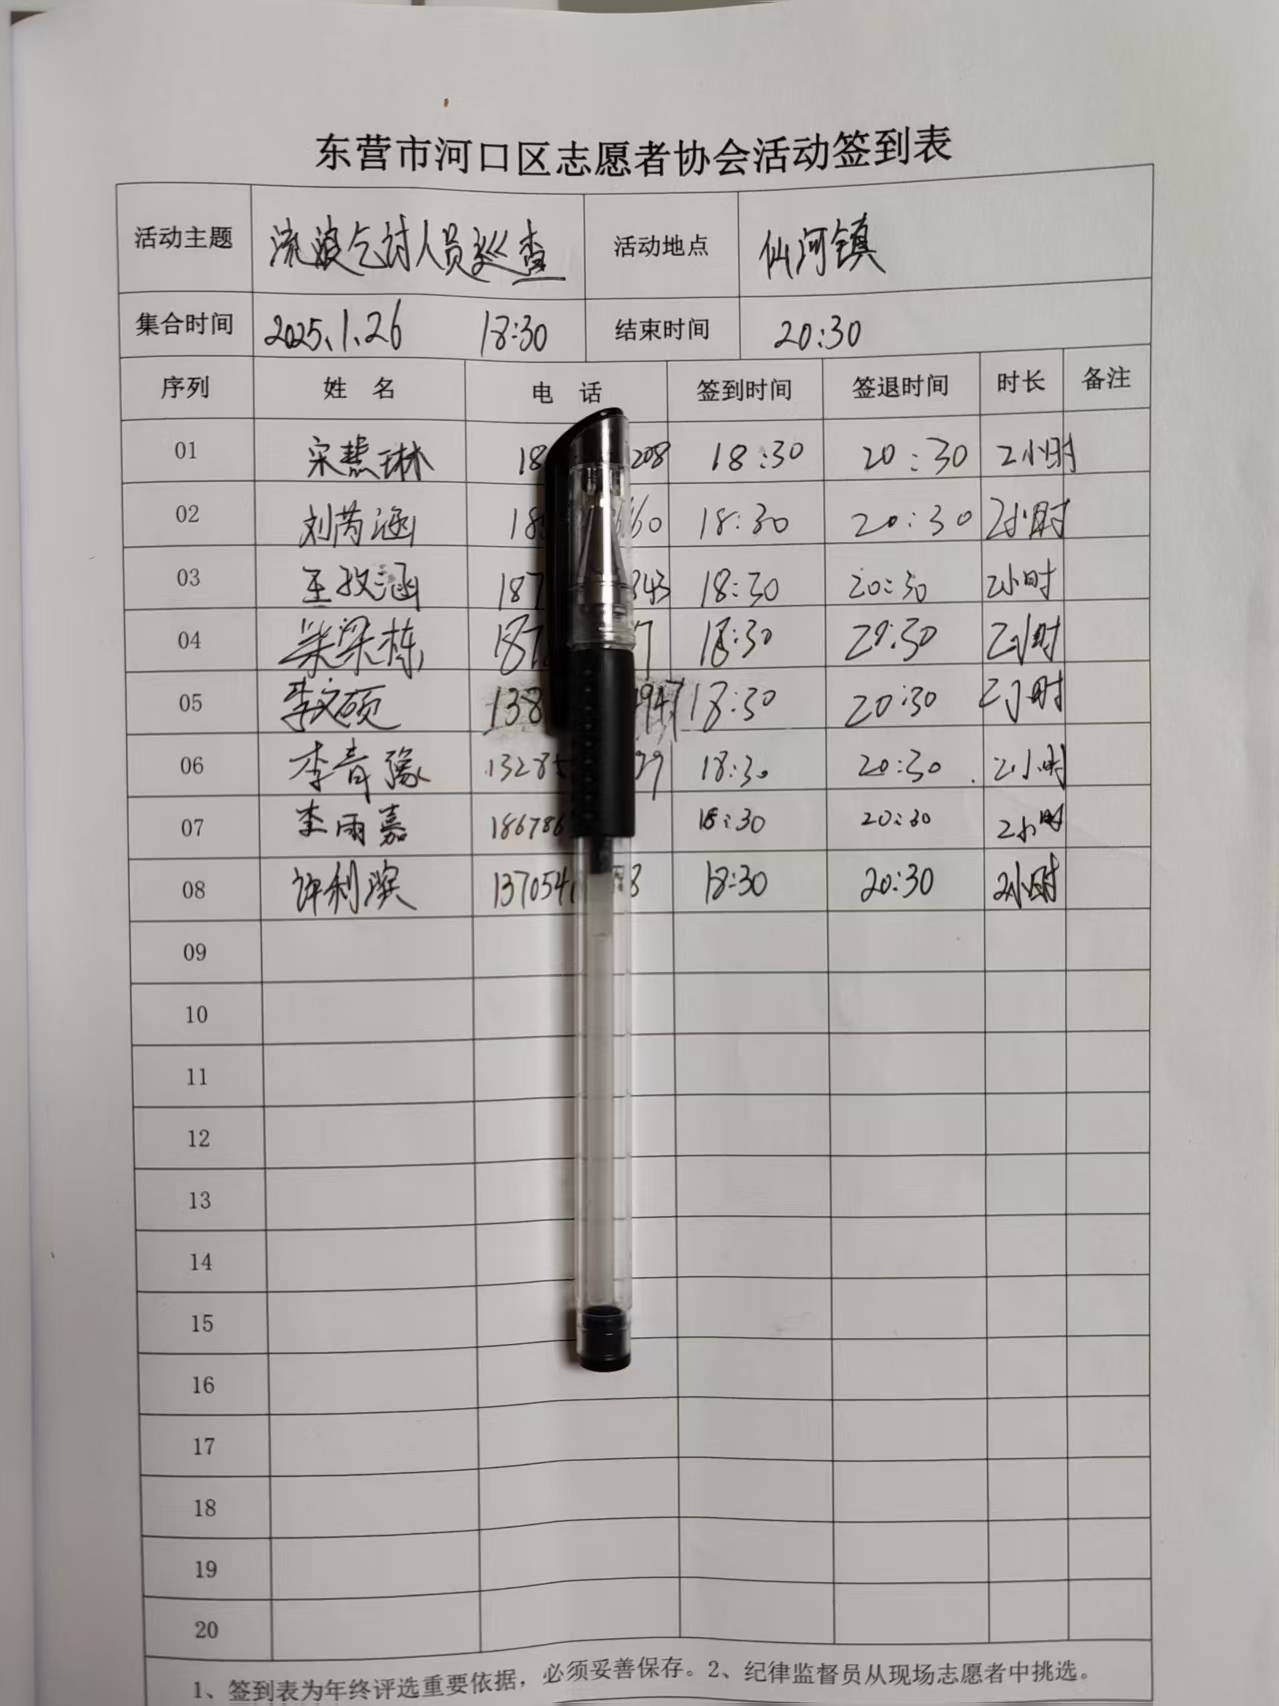 东营市河口区志愿者协会活动签到表
活动主题 流浪乞讨人员巡查 活动地点 仙河镇
集合时间 2025.1.26 18:30 结束时间 20:30
序列 姓名 电话 签到时间 签退时间 时长 备注
01 宋慧琳 18 208 18:30 20:30 2小时
02 刘芮涵 18 60 18:30 20:30 2小时
03 王孜涵 187 343 18:30 20:30 2小时
04 梁栋 187 7 18:30 20:30 2小时
05 李文硕 138 947 18:30 20:30 2小时
06 李青豫 1328 79 18:30 20:30 2小时
07 李雨嘉 186786 18:30 20:30 2小时
08 许利滨 137054 8 18:30 20:30 2小时
09
10
11
12
13
14
15
16
17
18
19
20
1、签到表为年终评选重要依据，必须妥善保存。2、纪律监督员从现场志愿者中挑选。